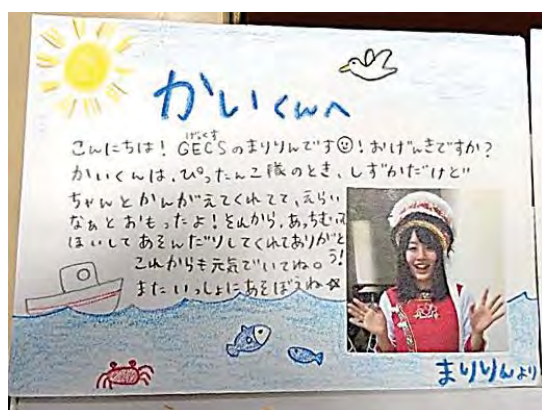 かいくんへ
げっくす
こんにちは！GECSのまりりんです☺！おげんきですか？
かいくんは、ぴったんこ隊のとき、しずかだけど
ちゃんとかんがえてくれてて、えらい
なぁとおもったよ！それから、あっちむいて
ほいしてあそんだりしてくれてありがとう！
これからも元気でいてね。
またいっしょにあそぼうね☆
まりりんより